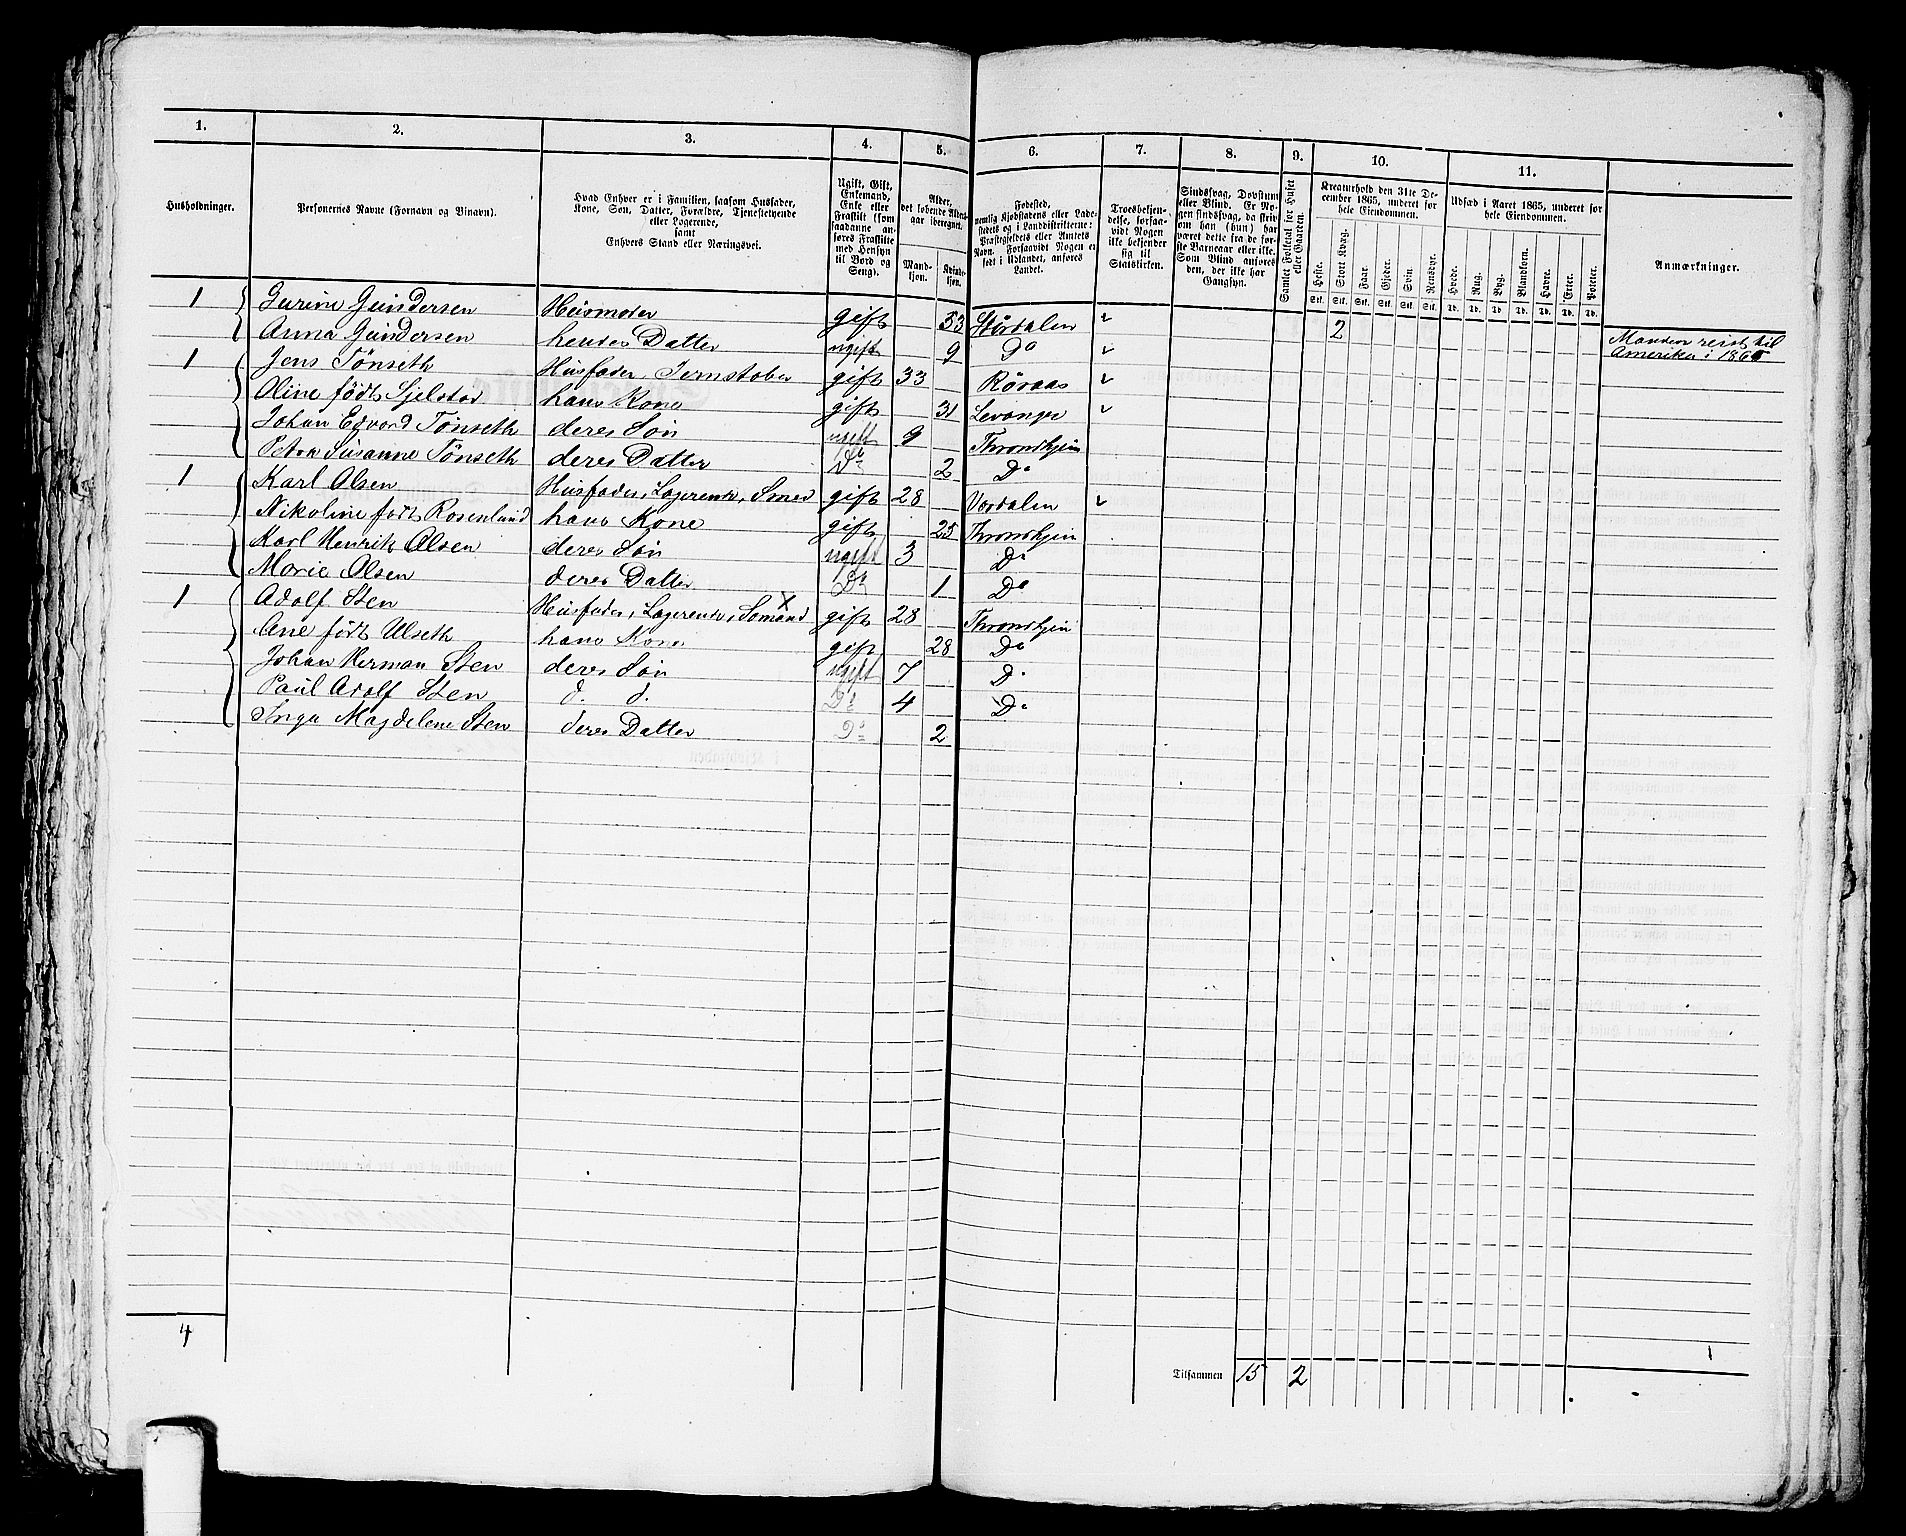 1. 2. 3. 4. 5. 6. 7. 8. 9. 10. 11.
Husholdninger.
Personernes Navne (Fornavn og Vinavn).
Hvad Enhver er i Familien, saasom Husfader,
Kone, Søn, Datter, Forældre, Tjenestetyende
eller Logerende,
samt
Enhvers Stand eller Næringsvei.
Ugift, Gift,
Enkemand,
Enke eller
Fraskilt (som
saadanne an-
føres Fraskilte
med Hensyn
til Bord og
Seng).
Alder,
det løbende Alders-
aar iberegnet.
Mand-
kjøn.
Kvinde-
kjøn.
Fødested,
nemlig Kjøbstadens eller Lade-
stedets og i Landdistrikterne:
Præstegjeldets eller Amtets
Navn. Forsaavidt Nogen er
født i Udlandet, anføres
Landet.
Troesbekjen-
delse, forsaa-
vidt Nogen
ikke bekjender
sig til
Statskirken.
Sindssvag, Døvstum
eller Blind. Er No-
gen sindssvag, da skriv
om han (hun) har
været dette fra de før-
ste Barneaar eller ikke.
Som Blind anføres
den, der ikke har
Gangsyn.
Samlet Folketal for Huset
eller Gaarden.
Kreaturhold den 31te De-
cember 1865, underet for
hele Eiendommen.
Heste. Stort Kvæg. Faar. Gjeder. Svin. Rensdyr.
Stk. Stk. Stk. Stk. Stk. Stk.
Udsæd i Aaret 1865, underet for
hele Eiendommen.
Hvede. Rug. Byg. Blandkorn. Havre. Erter. Poteter.
Td. Td. Td. Td. Td. Td. Td.
Anmærkninger.
1 Gurine Gundersen Husmoder gift 53 Størdalen 2 Manden reist til
Amerika i 1865
Anna Gundersen hendes Datter ugift 9 Do
1 Jens Tønseth Husfader, Jernstøber gift 33 Røraas
Oline født Sjelstad hans Kone gift 31 Levanger
Johan Edvard Tønseth deres Søn ugift 9 Throndhjem
Petra Susanne Tønseth deres Datter Do 2 Do
1 Karl Olsen Husfader, Logerende, Smed gift 28 Værdalen
Nikoline født Rosenlund hans Kone gift 25 Throndhjem
Karl Henrik Olsen deres Søn ugift 3 Do
Marie Olsen deres Datter Do 1 Do
1 Adolf Sten Husfader, Logerende, Sømand gift 28 Throndhjem
Ane født Ulseth hans Kone gift 28 Do
Johan Herman Sten deres Søn ugift 7 Do
Paul Adolf Sten d. d. Do 4 Do
Inga Magdelene Sten deres Datter Do 2
4
Tilsammen 15 2 1